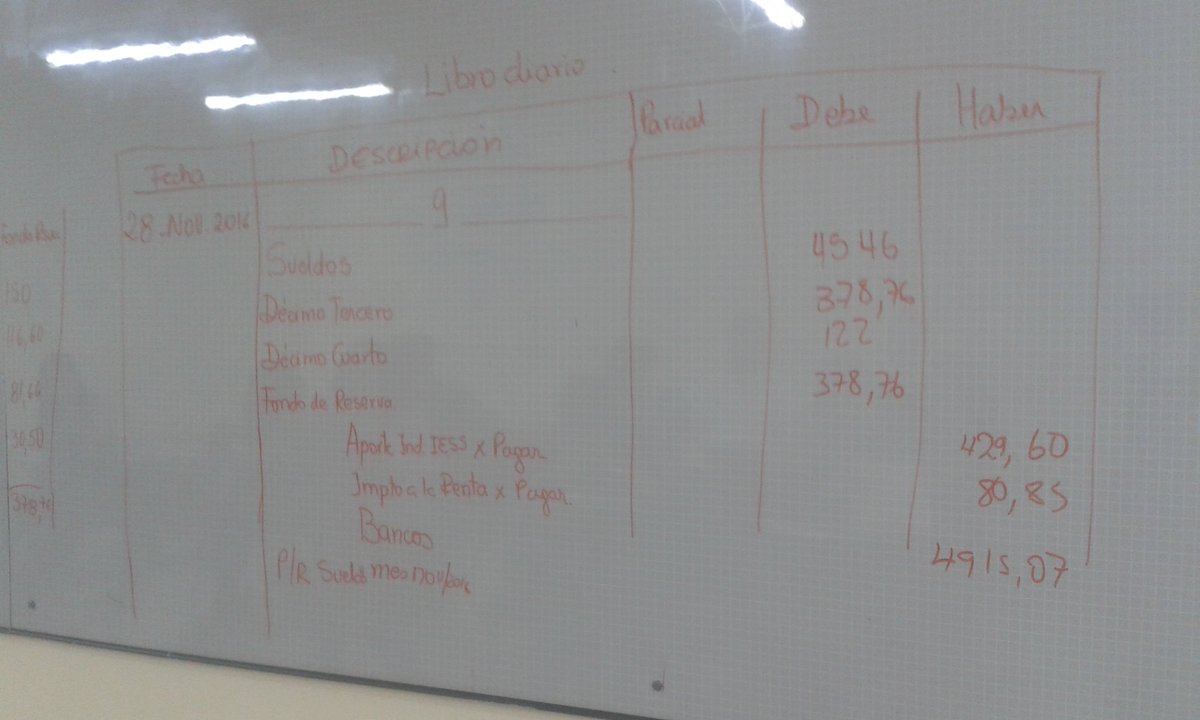 Libro diario
Fecha DESCRIPCION Parcial Debe Haber
28.Nov.2016 9
Sueldos 4546
Décimo Tercero 378,76
Décimo Cuarto 122
Fondo de Reserva 378,76
Aport Ind IESS x Pagar 429,60
Impto a la Renta x Pagar 80,85
Bancos 4915,07
P/R Sueldos mes nov/2016
30,50
378,76